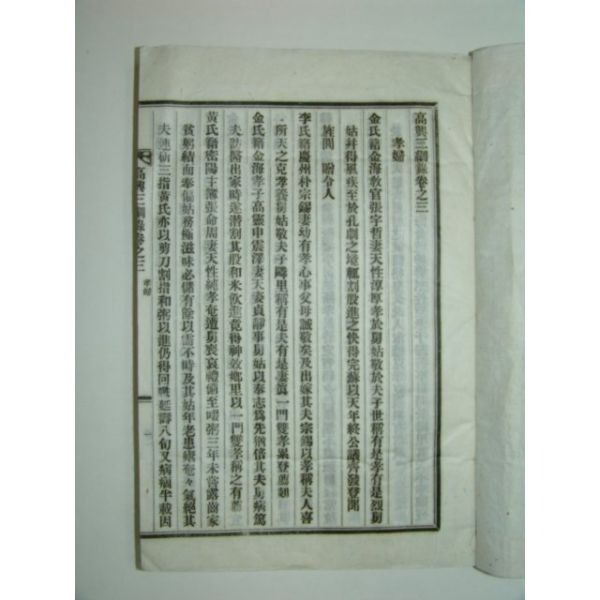 高興三綱錄卷之三
孝婦
金氏籍金海敎官張宇哲妻天性淳厚孝於舅姑敬於夫子世稱有是孝有是烈舅
姑幷得風疾至於孔劇之境輒割股進之快得完蘇以天年終公議齊發登聞
旌閭 贈令人
李氏籍慶州朴宗錫妻幼有孝心事父母誠敬矣及出嫁其夫宗錫以孝稱夫人喜
所天之克孝養舅姑敬夫子隣里稱有是夫有是妻眞一門雙孝累登薦剡
金氏籍金海孝子高靈申震澤妻貞靜事舅姑以奉志爲先猶倍其夫舅病篤
夫訪醫出家時遂潛割其股和米飮進竟得神效鄕里以一門雙孝稱之有薦
黃氏籍密陽主簿張命周妻天性純孝奄遭舅喪哀禮備至啜粥三年未嘗露齒家
貧躬績而奉偏姑務極滋味必儲有餘以需不時及其姑年老患癘奄々氣絕其
夫連斫三指黃氏亦以剪刀割指和粥以進仍得回甦延壽八旬又病痼半載因
高興三綱錄卷之三 孝婦 一